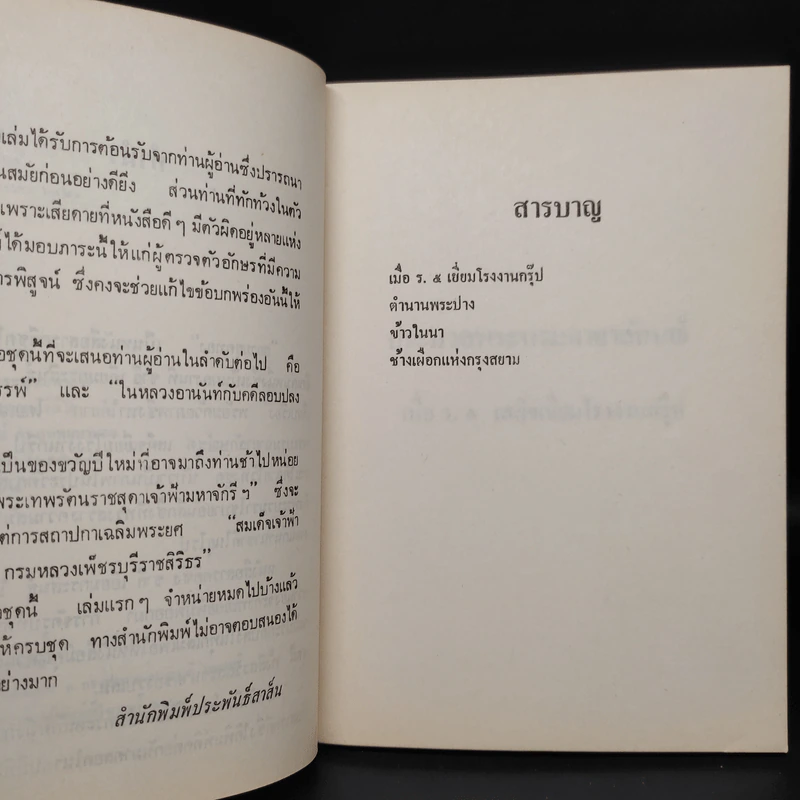 เล่มได้รับการต้อนรับจากท่านผู้อ่านซึ่งปรารถนา
นสมัยก่อนอย่างดียิ่ง ส่วนท่านที่ทักท้วงในตัว
เพราะเสียดายที่หนังสือดีๆ มีตัวผิดอยู่หลายแห่ง
ได้มอบภาระนี้ให้แก่ผู้ตรวจตัวอักษรที่มีความ
ารพิสูจน์ ซึ่งคงจะช่วยแก้ไขข้อบกพร่องอันนี้ให้
อชุดนี้ที่จะเสนอท่านผู้อ่านในลำดับต่อไป คือ
รรพ์” และ “ในหลวงอานันท์กับคดีลอบปลง
เป็นของขวัญปีใหม่ที่อาจมาถึงท่านช้าไปหน่อย
พระเทพรัตนราชสุดาเจ้าฟ้ามหาจักรีฯ” ซึ่งจะ
ต่การสถาปกาเฉลิมพระยศ “สมเด็จเจ้าฟ้า
กรมหลวงเพ็ชรบุรีราชสิริธร”
ชุดนี้ เล่มแรกๆ จำหน่ายหมดไปบ้างแล้ว
ห้ครบชุด ทางสำนักพิมพ์ไม่อาจตอบสนองได้
ย่างมาก
สำนักพิมพ์ประพันธ์สาส์น
สารบาญ
เมื่อ ร. ๕ เยี่ยมโรงงานกรุ๊ป
ตำนานพระปาง
ข้าวในนา
ช้างเผือกแห่งกรุงสยาม